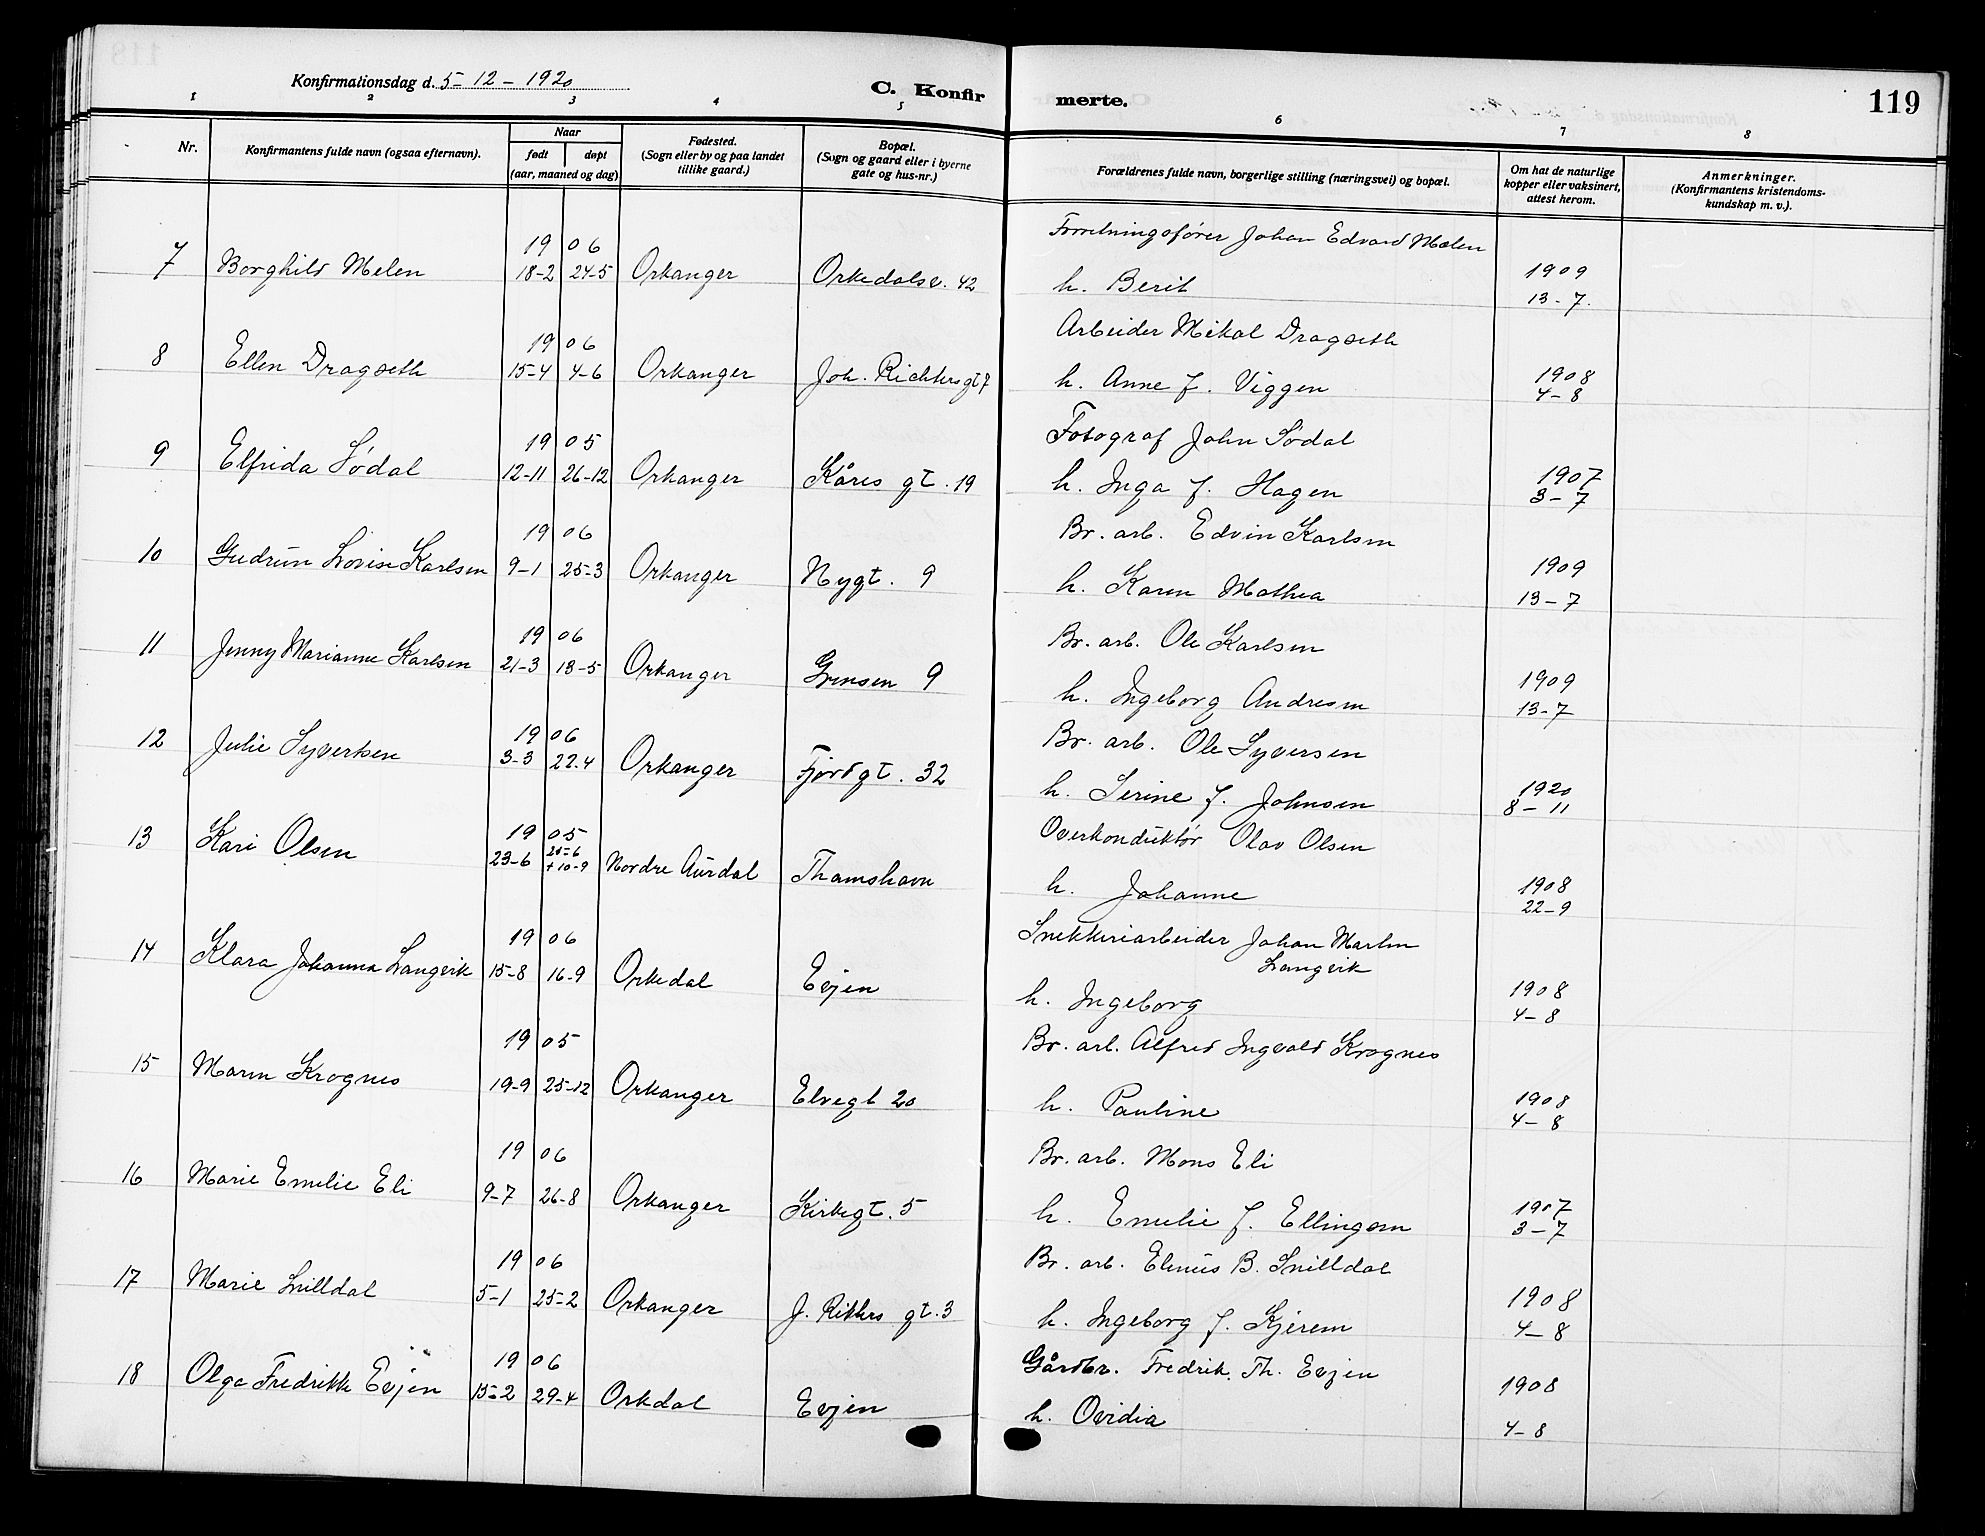 Konfirmationsdag d. 5-12-1920
C. Konfirmerte.
119
1 2 3 4 5 6 7 8
Nr.
Konfirmantens fulde navn (ogsaa efternavn).
Naar
født døpt
(aar, maaned og dag)
Fødested.
(Sogn eller by og paa landet
tillike gaard.)
Bopæl.
(Sogn og gaard eller i byerne
gate og hus-nr.)
Forældrenes fulde navn, borgerlige stilling (næringsvei) og bopæl.
Om hat de naturlige
kopper eller vaksinert,
attest herom.
Anmerkninger.
(Konfirmantens kristendoms-
kundskap m. v.).
19 06 Forretningsfører Johan Edvard Melen
7 Borghild Melen 18-2 24-5 Orkanger Orkedalsv. 42 h. Berit 1909
13-7.
19 06 Arbeider Mikal Dragseth
8 Ellen Dragseth 15-4 4-6 Orkanger Joh. Richters gt 7 h. Anne f. Viggen 1908
4-8
19 05 Fotograf John Sødal
9 Elfrida Sødal 12-11 26-12 Orkanger Kåres gt. 19 h. Inga f. Hagen 1907
3-7
19 06 Br. arb. Edvin Karlsen
10 Gudrun Lovise Karlsen 9-1 25-3 Orkanger Nygt. 9 h. Karen Mathea 1909
13-7
19 06 Br. arb. Ole Karlsen
11 Jenny Marianne Karlsen 21-3 13-5 Orkanger Grensen 9 h. Ingeborg Andresen 1909
13-7
19 06 Br. arb. Ole Syversen
12 Julie Syvertsen 3-3 22-4 Orkanger Fjordgt. 32 h. Serine f. Johnsen 1920
8-11
19 05 Overkonduktør Olav Olsen
13 Kari Olsen 23-6 25-6
+10-9 Nordre Aurdal Thamshavn h. Johanne 1908
22-9
19 06 Snekkeriarbeider Johan Martin
Langvik
14 Klara Johanna Langvik 15-8 16-9 Orkedal Evjen h. Ingeborg 1908
4-8
19 05 Br. arb. Alfred Ingvald Krognes
15 Maren Krognes 19-9 25-12 Orkanger Elvegt 20 h. Pauline 1908
4-8
19 06 Br. arb. Mons Eli
16 Marie Emelie Eli 9-7 26-8 Orkanger Kirkegt. 5 h. Emelie f. Ellingsen 1907
3-7
19 06 Br. arb. Elenus B. Snilldal
17 Marie Snilldal 5-1 25-2 Orkanger J. Rikters gt. 3 h. Ingeborg f. Kjerem 1908
4-8
19 06 Gårdbr. Fredrik Th. Evjen
18 Olga Fredrikke Evjen 15-2 29-4 Orkdal Evjen h. Ovidia 1908
4-8